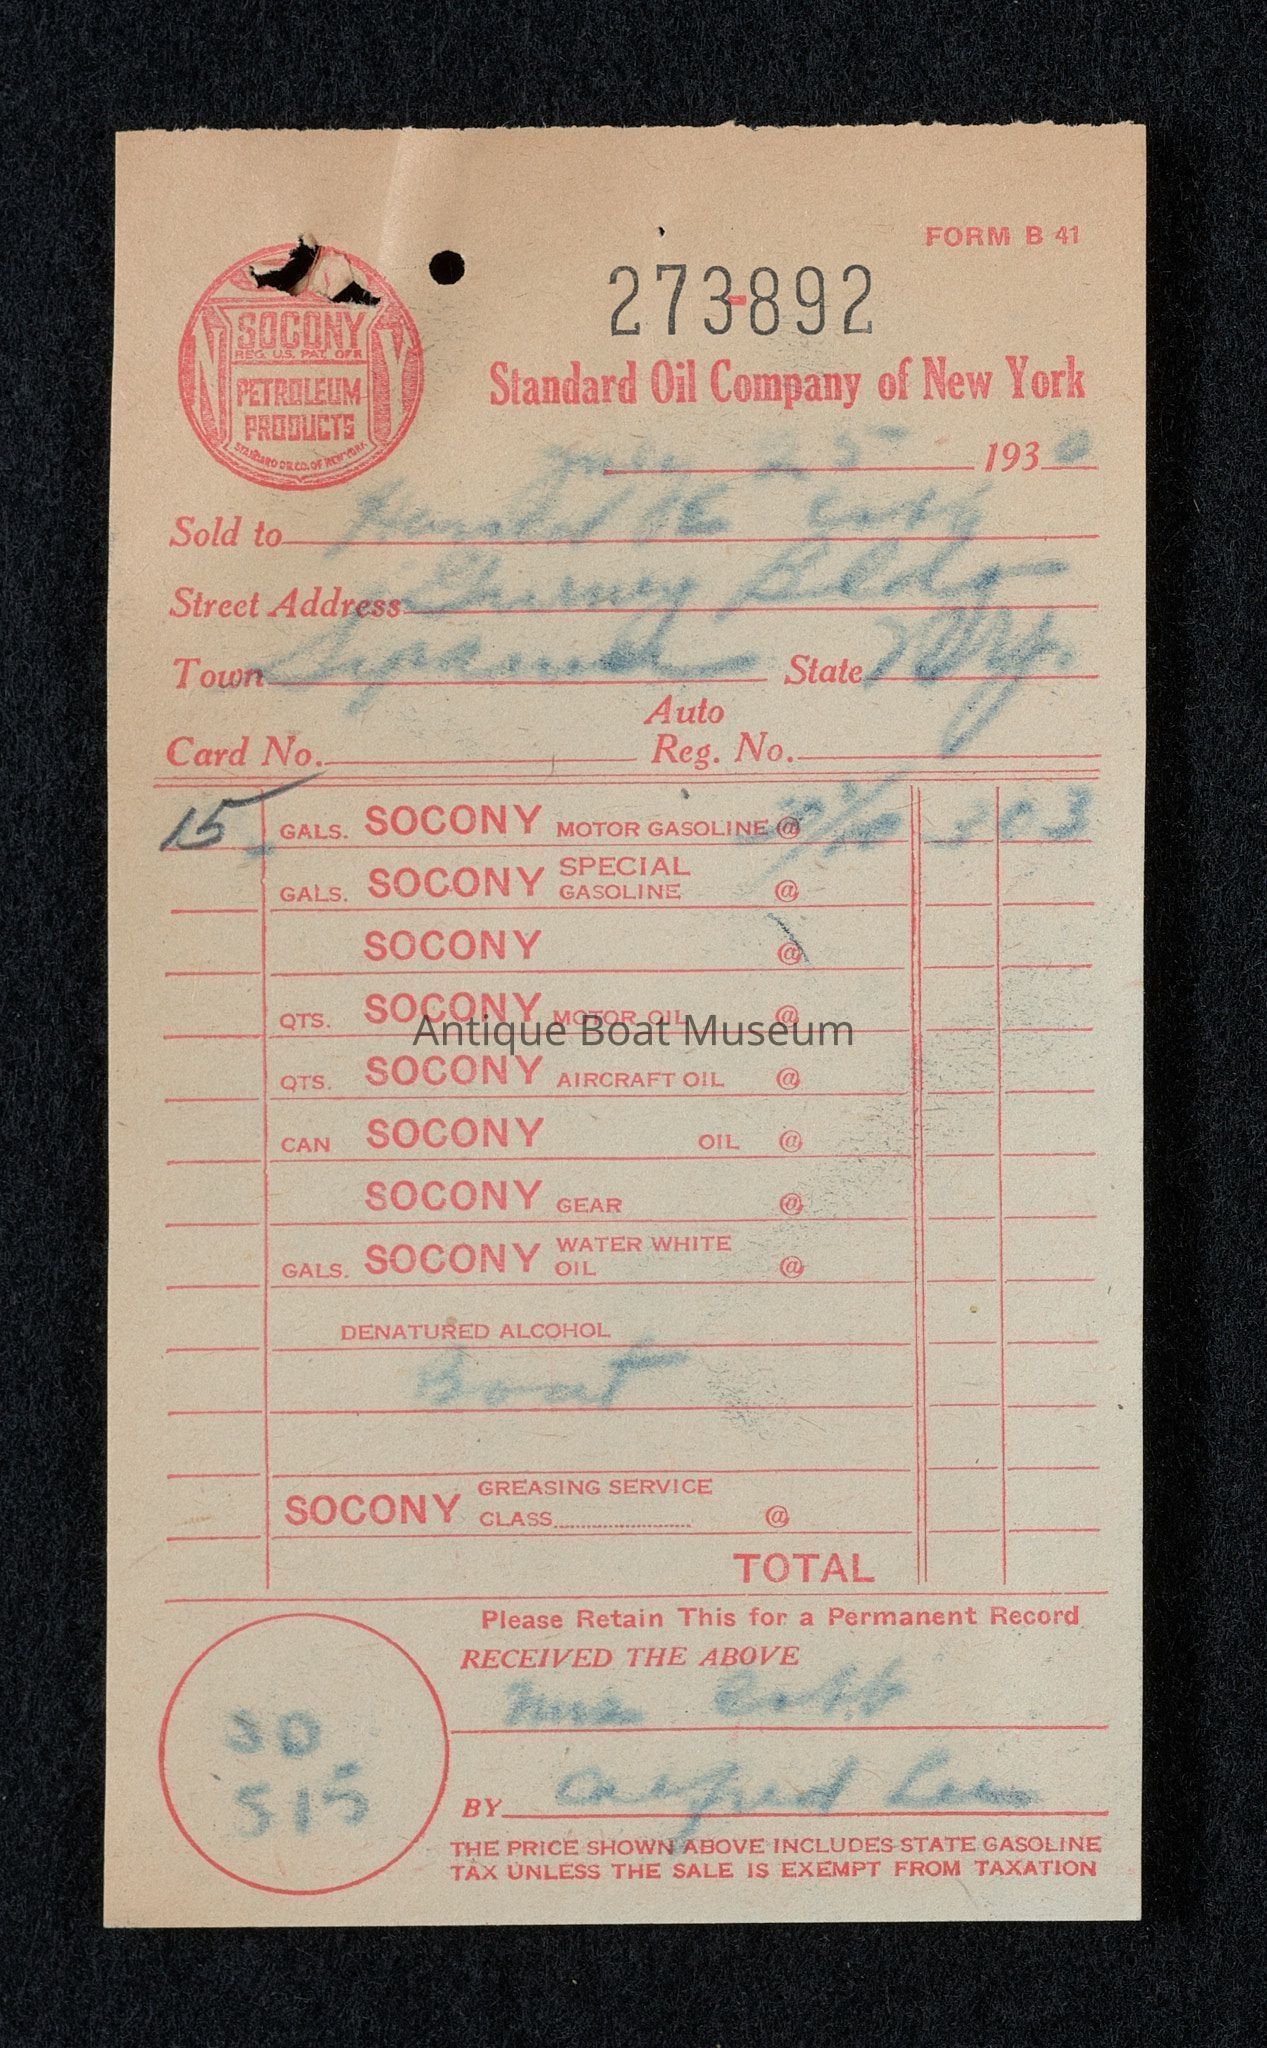 FORM B 41
273-892
SOCONY
REG. U.S. PAT. OFF.
PETROLEUM
PRODUCTS
STANDARD OIL CO. OF NEW YORK
N Y
Standard Oil Company of New York
5 1930
Sold to Harold K Cobb
Street Address Bldg
Town Syracuse State N.Y.
Auto
Card No. Reg. No.
15 GALS. SOCONY MOTOR GASOLINE @ 3 03
GALS. SOCONY SPECIAL GASOLINE @
SOCONY @
QTS. SOCONY MOTOR OIL @
Antique Boat Museum
QTS. SOCONY AIRCRAFT OIL @
CAN SOCONY OIL @
SOCONY GEAR @
GALS. SOCONY WATER WHITE OIL @
DENATURED ALCOHOL
Boat
SOCONY GREASING SERVICE
CLASS @
TOTAL
Please Retain This for a Permanent Record
RECEIVED THE ABOVE
Mrs Cobb
30
515
BY Alfred Lee
THE PRICE SHOWN ABOVE INCLUDES STATE GASOLINE
TAX UNLESS THE SALE IS EXEMPT FROM TAXATION